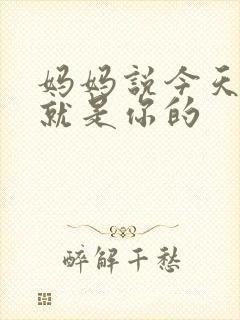 妈妈説今天
就是你的
醉解千愁